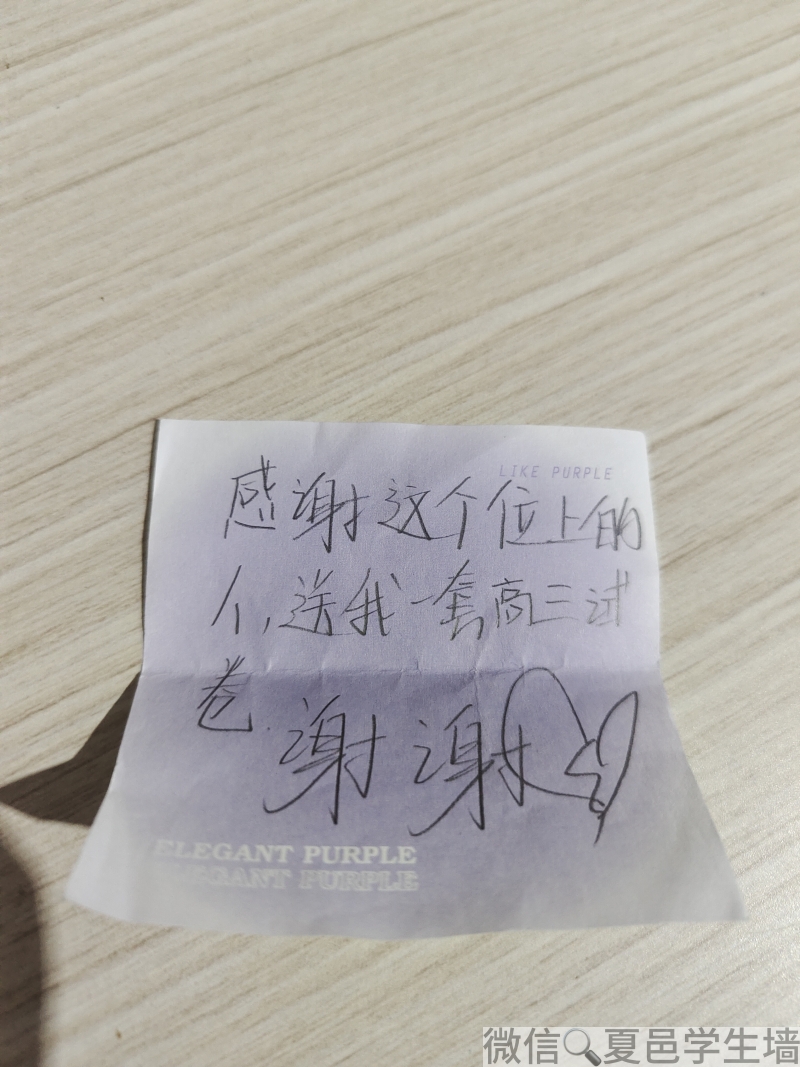 LIKE PURPLE
感谢这个位上的
人,送我一套高三试
卷
谢谢
ELEGANT PURPLE
ELEGANT PURPLE
微信🔍夏邑学生墙